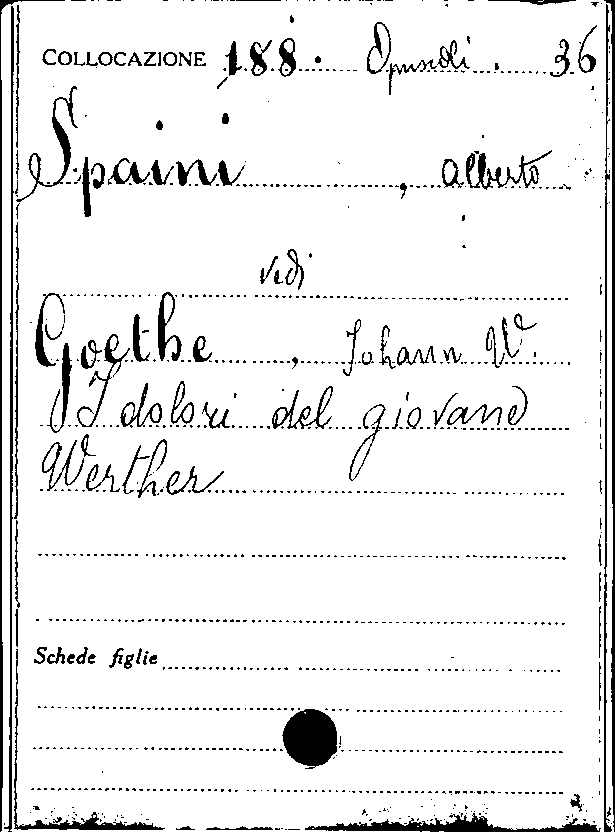 COLLOCAZIONE 188. Opuscoli. 36
Spaini, Alberto
vedi
Goethe, Johann W.
I dolori del giovane
Werther
Schede figlie